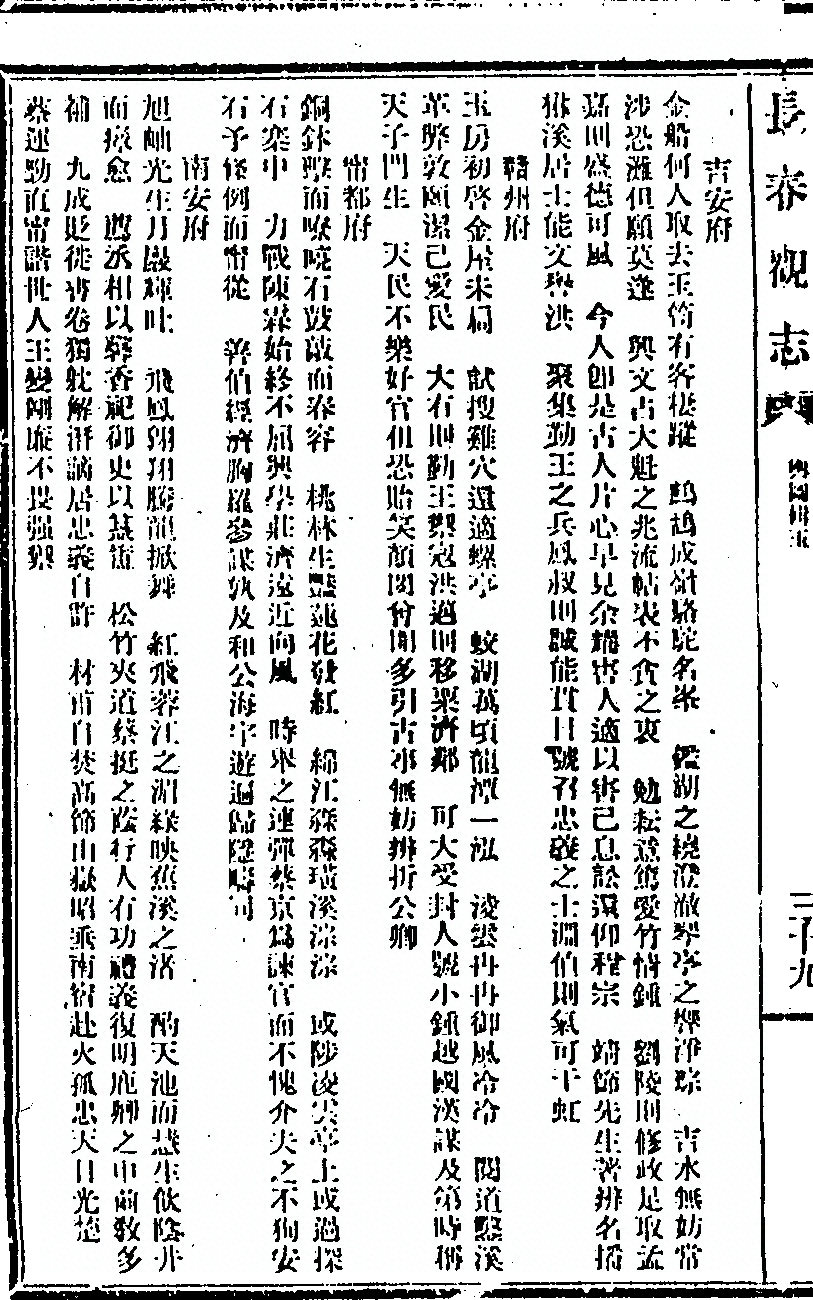 長春觀志 卷四
吉安府
金船何人取去玉笥有客棲蹤 鷓鴣成嶺駱駝名峯 鑑湖之繞澄澈琴亭之響淨琮 吉水無妨常
涉恐灘但願莫逢 興文占大魁之兆流帖表不貪之衷 勉耘意篤愛竹情鍾 劉陵則修政足取孟
嘉則盛德可風 今人即是古人片心早見余耀害人適以害己息訟還仰程宗 靖節先生著辨名揚
楙溪居士能文與洪 聚集勤王之兵鳳叔則誠能貫日號召忠義之士淵伯則氣可干虹
贛州府
玉房初啓金屋未扃 試搜雞穴還適螺亭 蛟湖萬頃龍潭一泓 淩雲冉冉御風冷冷 閱道鑿溪
革弊敦頤潔己愛民 大有則勤王禦寇洪邁則移粟濟鄰 可大受封人號小鍾越國漢謀及第時稱
天子門生 天民不樂好官但恐貽笑顏閔曾開多引古事無妨辨折公卿
甯都府
銅鉢擊而嘹曉石鼓敲而舂容 桃林生豔蓮花發紅 綿江森森璜溪淙淙 或陟淩雲亭上或過探
石寨中 力戰陳霖始終不屈興學莊濟遠近向風 時舉之連彈蔡京爲諫官而不愧介夫之不狥安
石予條例而甯從 善伯經濟胸羅參謀孰及和公海宇遊遍歸隱疇同
南安府
旭岫光生月巖輝吐 飛鳳翔翔騰龍掀舞 紅飛蓉江之湄綠映蕉溪之渚 酌天池而慧生飲陰井
而瘵愈 蕭丞相以辦香祀御史以燕 松竹夾道蔡挺之蔭行人有功禮義復明鹿卿之申前教多
補 九成貶徙書卷獨躭解潛謫居忠義自許 材甫自焚高節山嶽昭垂南宿赴火孤忠天日光楚
蔡運勁直甯諧世人王變剛嚴不畏强禦